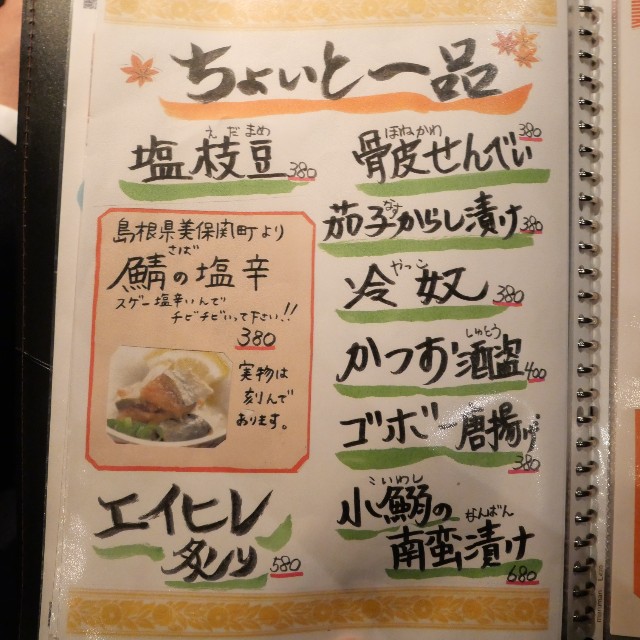 ちょいと一品
えだまめ
塩枝豆 380
島根県美保関町より
さば
鯖の塩辛
スゲー塩辛いんで
チビチビいって下さい!!
380
実物は
刻んで
あります。
エイヒレ
炙り 580
ほねかわ
骨皮せんべい 380
なす
茄子からし漬け 380
やっこ
冷奴 380
しゅとう
かつお酒盗 400
ゴボー唐揚げ 380
こいわし
小鰯の
なんばん
南蛮漬け 680